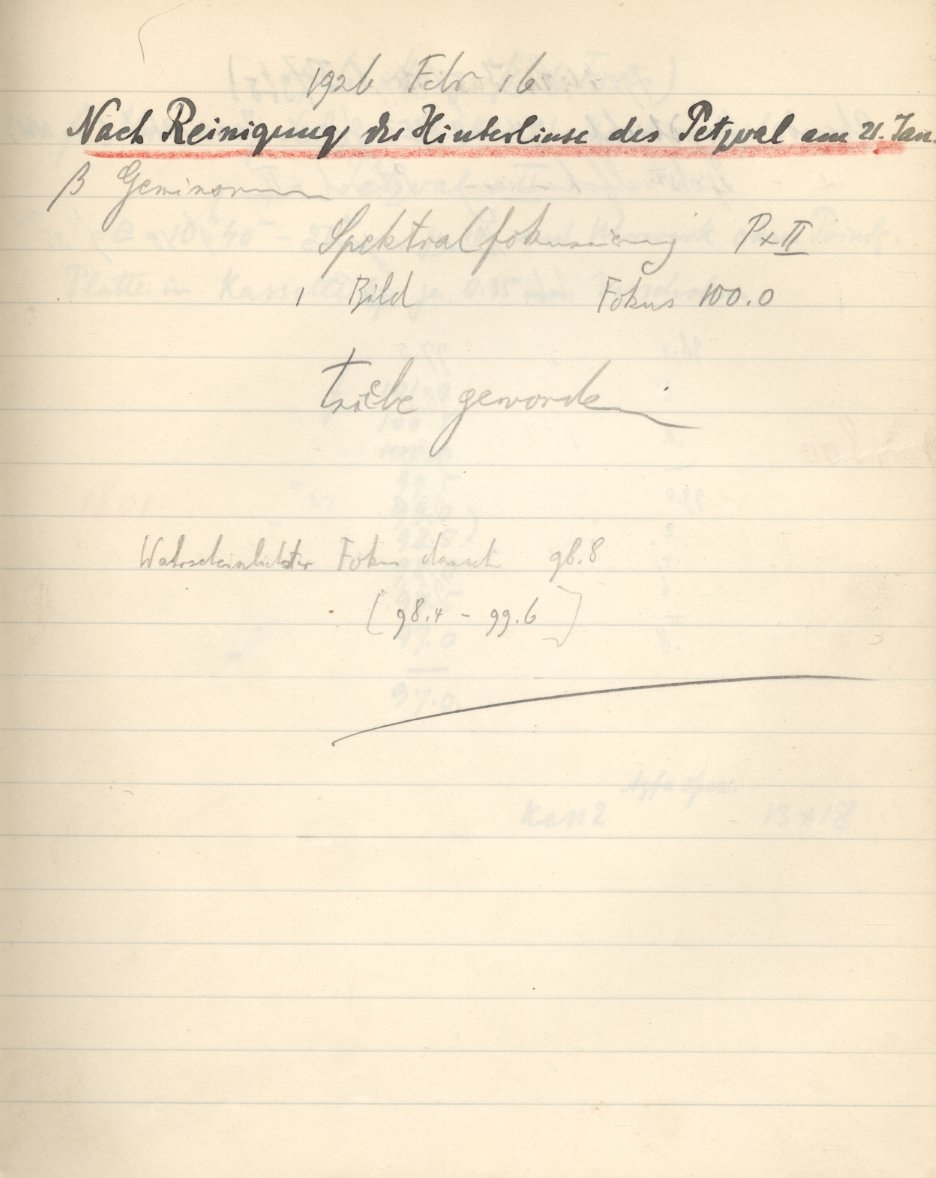 1926 Febr 16
Nach Reinigung der Hinterlinse des Petzval am 21. Jan.
β Geminorum
Spektralfokusierung P+II
1 Bild Fokus 100.0
trübe geworden
Wahrscheinlichster Fokus danach 98.8
[98.4 - 99.6]